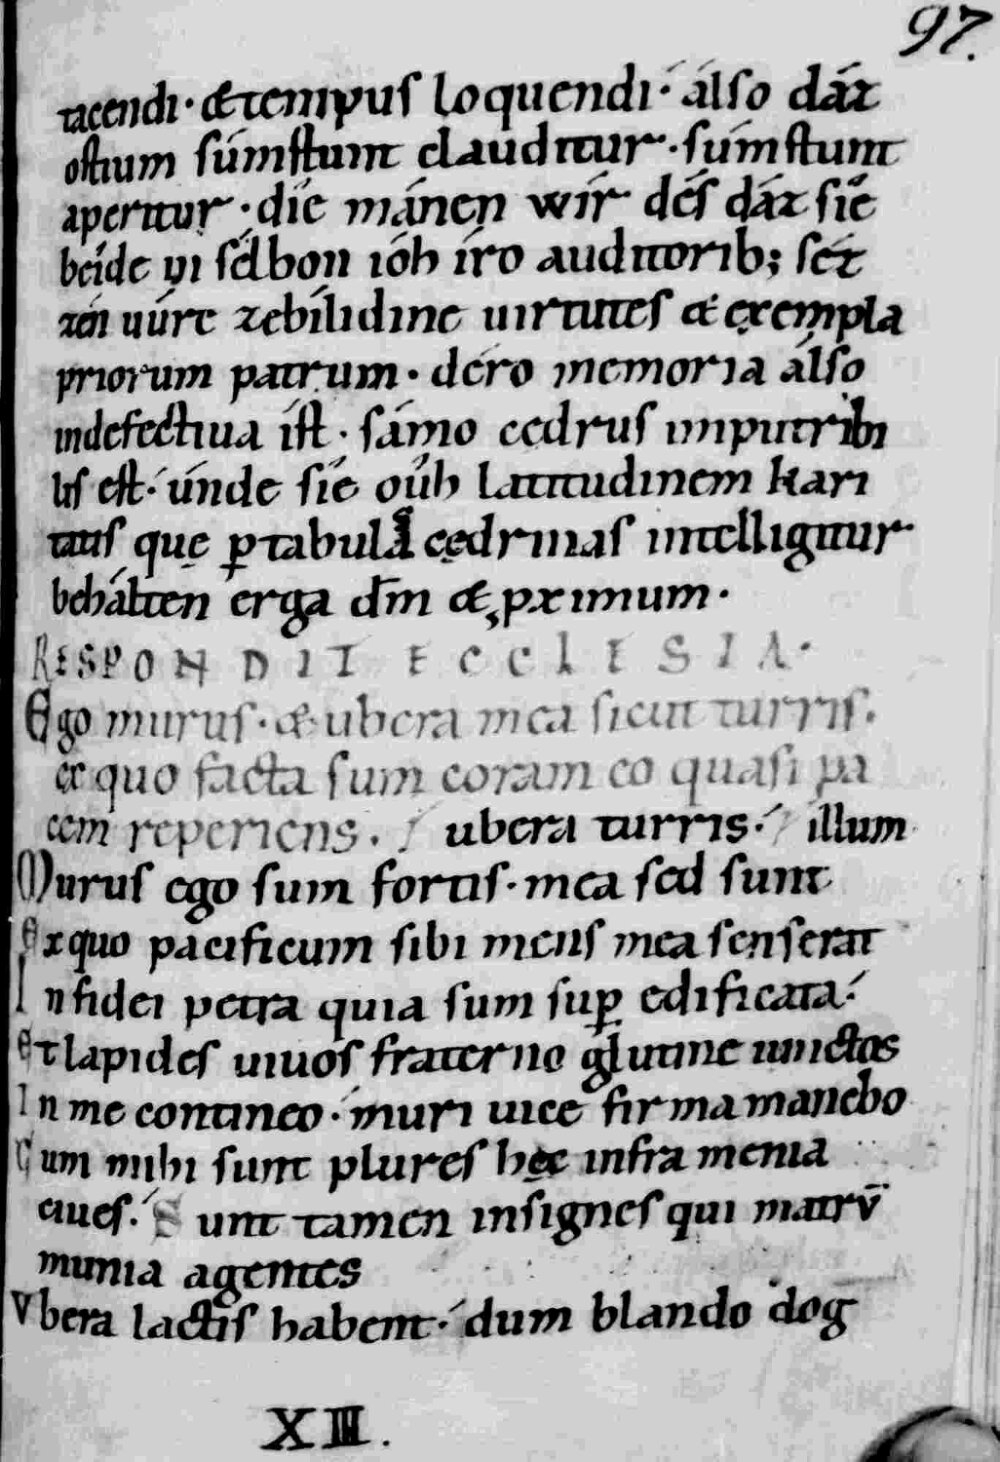 97.
tacendi· & tempus loquendi· álso dáz
ostium súmstunt clauditur· súmstunt
aperitur· díe mánen wír dés dáz síe
béide vı sélbon ióh íro auditorib; séz
zén vúre zebílidine uirtutes & exempla
priorum patrum· déro memoria álso
indefectiua íst· sámo cedrus imputribi
lis est· únde síe oúh latitudinem kari
tatis quę ꝑ tabulas cędrinas intelligitur
behálten erga dm̄ & ꝓximum·
RESPONDIT ECCLESIA·
Ego murus· & ubera mea sicut turris.
ex quo facta sum coram eo quasi pa
cem reperiens. ubera turris· illum
Murus ego sum fortis· mea sed sunt
Ex quo pacificum sibi mens mea senserat
In fidei petra quia sum suꝑ edificata·
Et lapides uiuos fraterno glutine uinctos
In me contineo· muri uice firma manebo
Cum mihi sunt plures hęc infra menia
ciues· Sunt tamen insignes qui matrū
munia agentes
Vbera lactis habent· dum blando dog
XIII.